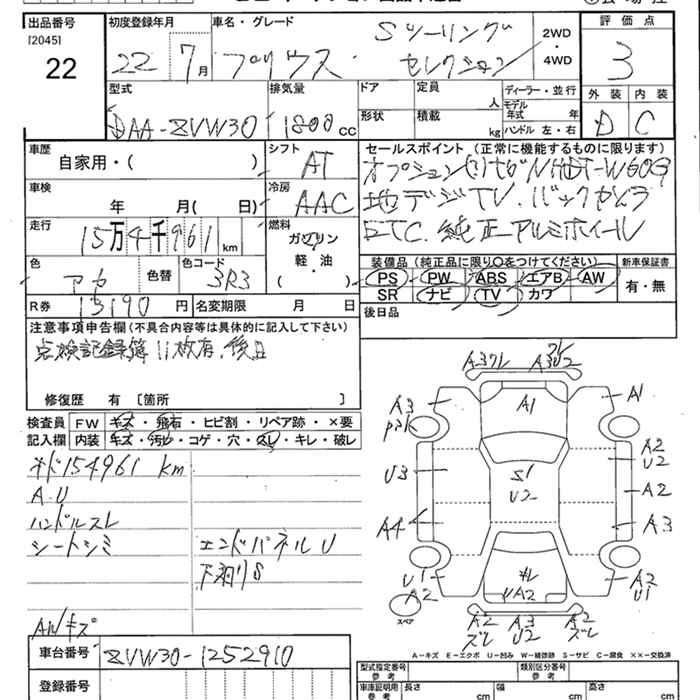 出品番号 初度登録年月 車名・グレード 評価点
[2045]
22
22 7月 プリウス Sツーリング セレクション 2WD・4WD 3
型式 排気量 ドア 定員 人 ディーラー・並行 外装 内装
DAA-ZVW30 1800cc 形状 積載 kg モデル年式 年 ハンドル 左・右 D C
車歴 自家用・( ) シフト AT
セールスポイント (正常に機能するものに限ります)
車検 年 月( 日) 冷房 AAC
地デジTV.バックカメラ
ETC.純正アルミホイール
走行 15万4千961km 燃料 ガソリン 軽・油 ( )
色 アカ 色替 色コード 3R3
装備品 (純正品に限り○をつけてください) 新車保証書
PS PW ABS エアB AW 有・無
SR ナビ TV カワ
R券 13190円 名変期限 月 日
後日品
注意事項申告欄(不具合内容等は具体的に記入して下さい)
点検記録簿11枚有.後日
修復歴 有 [箇所 ]
検査員 FW キズ・飛石・ヒビ割・リペア跡・×要
記入欄 内装 キズ・汚レ・コゲ・穴・スレ・キレ・破レ
154961 km
A.U
ハンドルスレ
シートシミ エンドパネルU
AW/キズ
A3 A1
A1
U3 S1 U2
A2 U2
A2
A4 A3
U1 A2
A2 U1
スペア
A2 ズレ A3 U2 A2 ズレ
A-キズ E-エクボ U-凹み W-補修跡 S-サビ C-腐食 ××-交換済
車台番号 ZVW30-1252910
登録番号
型式指定番号 参考 類別区分番号 参考
車庫証明用 参考 長さ cm 幅 cm 高さ cm